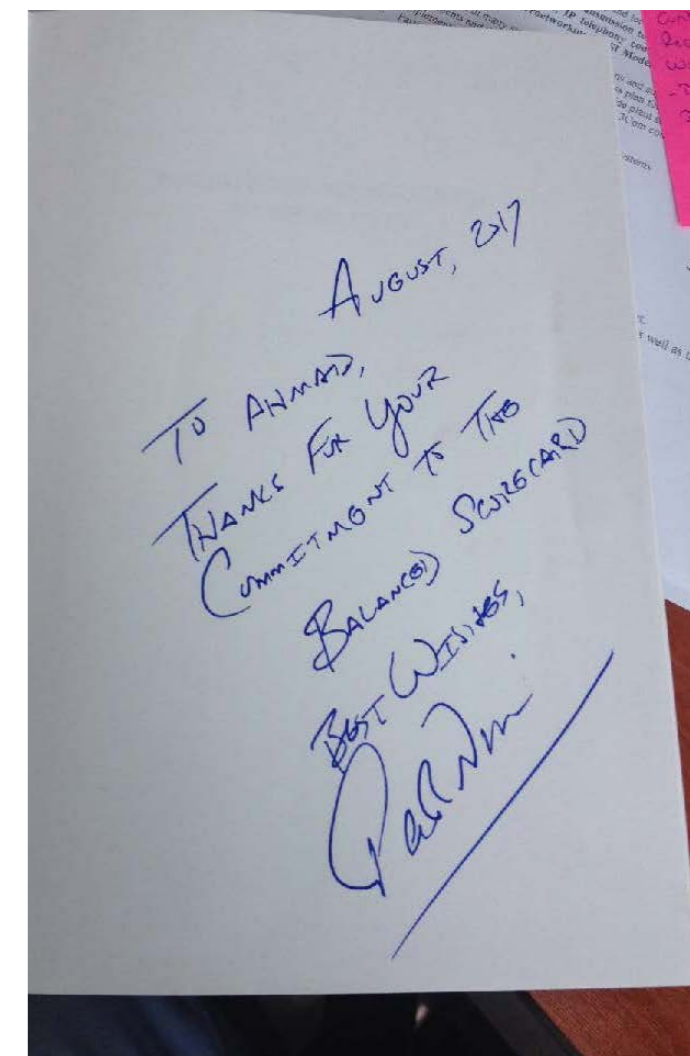 AUGUST, 2017
TO AHMAD,
THANKS FOR YOUR
COMMITMENT TO THE
BALANCED SCORECARD
BEST WISHES,
Paul Niven
as well as